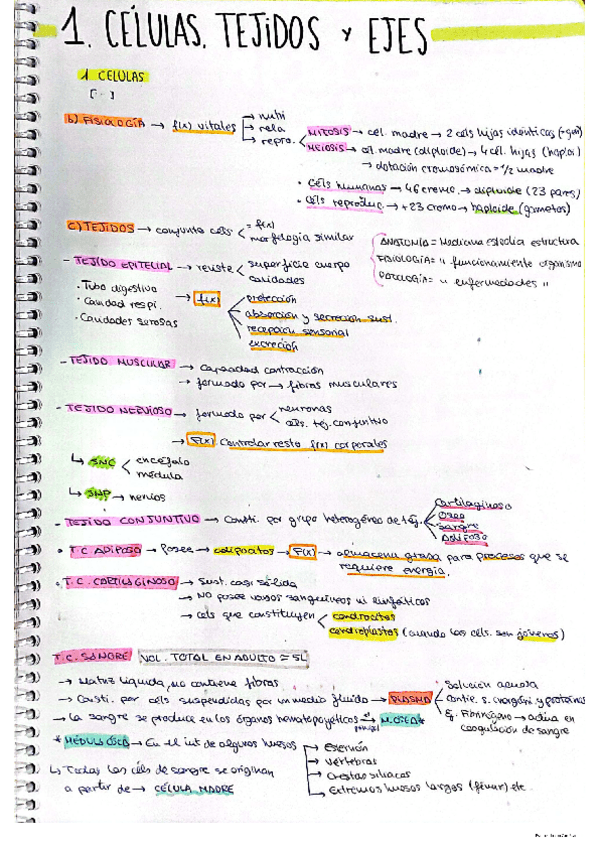 1. CÉLULAS, TEJIDOS Y EJES
1 CELULAS
[...]
b) FISIOLOGÍA → f(x) vitales → nutri
→ rela
→ repro. < MITOSIS → cél. madre → 2 céls hijas idénticas
MEIOSIS → cél. madre (diploide) → 4 cél. hijas (haploi)
→ dotación cromosómica = 1/2 madre
• Céls humanas → 46 cromo. → diploide (23 pares)
• Céls reproduc. → 23 cromo → haploide (gametos)
c) TEJIDOS → conjunto céls < = f(x)
morfología similar
ANATOMÍA = Medicina estudia estructura
FISIOLOGÍA = " funcionamiento organismo
PATOLOGÍA = " enfermedades "
- TEJIDO EPITELIAL → reviste < superficie cuerpo
cavidades
• Tubo digestivo
• Cavidad respi.
• Cavidades serosas
→ f(x) < protección
absorción y secreción sust.
recepción sensorial
excreción
- TEJIDO MUSCULAR → capacidad contracción
→ formado por → fibras musculares
- TEJIDO NERVIOSO → formado por < neuronas
céls. tej. conjuntivo
→ f(x) Controlar resto f(x) corporales
↳ SNC < encéfalo
médula
↳ SNP → nervios
- TEJIDO CONJUNTIVO → Consti. por grupo heterogéneo de tej. < Cartilaginoso
Óseo
Sangre
Adiposo
• T.C. ADIPOSO → Posee → adipocitos → F(x) → almacena grasa para procesos que se
requiere energía.
• T.C. CARTILAGINOSO → Sust. casi sólida
→ No posee vasos sanguíneos ni linfáticos
→ céls que constituyen < condrocitos
condroplastos (cuando las céls. son jóvenes)
T.C. SANGRE VOL. TOTAL EN ADULTO = 5L
→ Matriz líquida, no contiene fibras
→ Consti. por céls suspendidas por un medio fluido → PLASMA < Solución acuosa
Contie. s. inorgáni y proteínas
Ej. Fibrinógeno → activa en
coagulación de sangre
→ La sangre se produce en los órganos hematopoyéticos → M.ÓSEA*
* MÉDULA ÓSEA → En el int de algunos huesos → Esternón
→ Vértebras
→ Crestas iliacas
→ Extremos huesos largos (fémur) etc.
↳ Todas las céls de sangre se originan
a partir de → CÉLULA MADRE